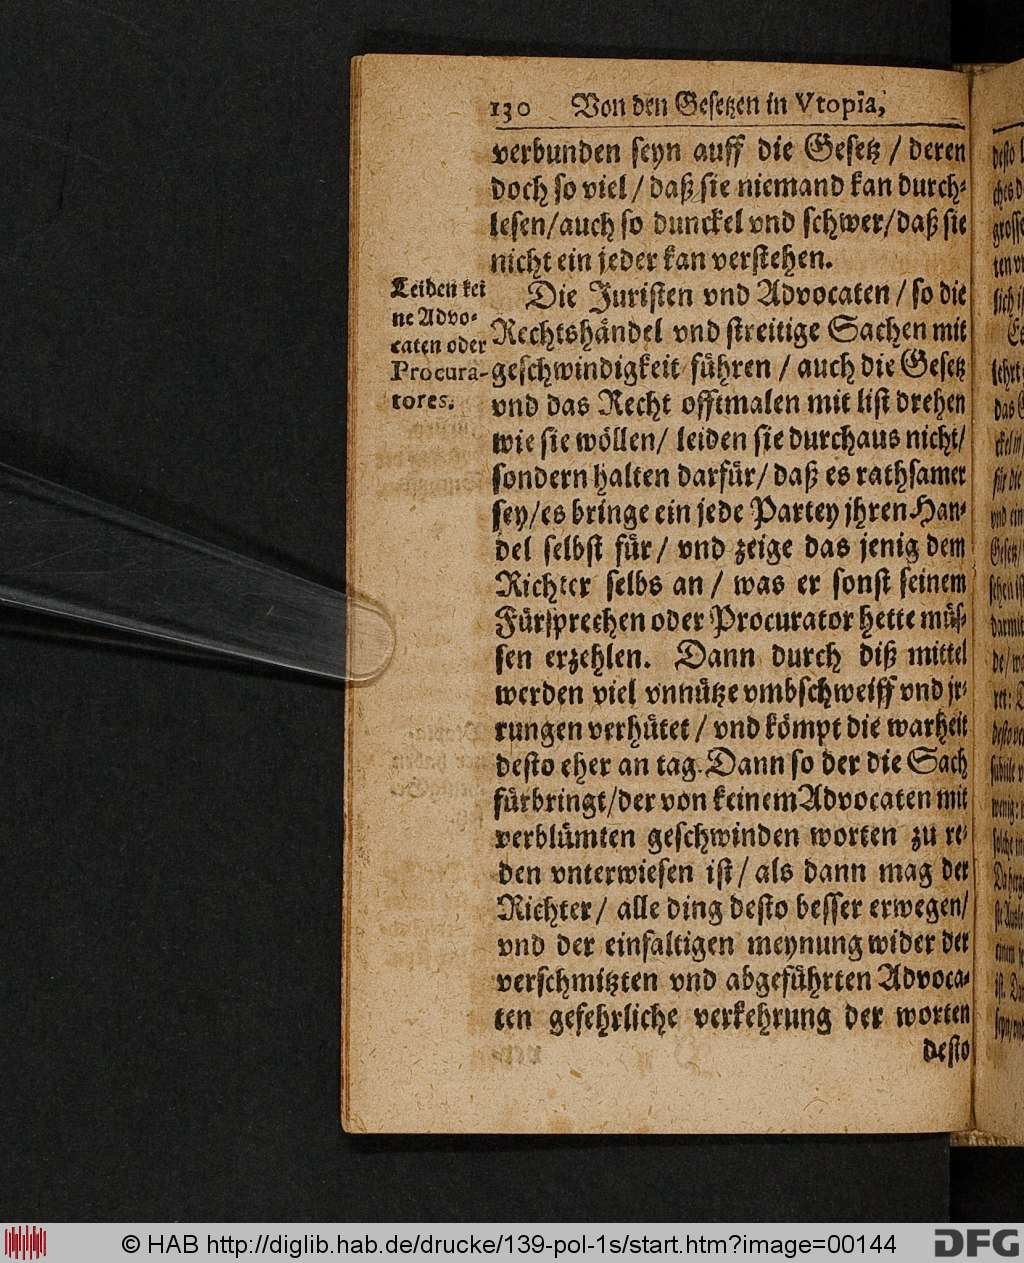 130 Von den Gesetzen in Vtopia,
verbunden seyn auff die Gesetz / deren
doch so viel / daß sie niemand kan durch-
lesen/auch so dunckel vnd schwer/daß sie
nicht ein jeder kan verstehen.
Leiden kei
ne Advo-
caten oder
Procura-
tores.
Die Juristen vnd Advocaten / so die
Rechtshändel vnd streitige Sachen mit
geschwindigkeit führen / auch die Gesetz
vnd das Recht offtmalen mit list drehen
wie sie wöllen/ leiden sie durchaus nicht/
sondern halten darfür/ daß es rathsamer
sey/es bringe ein jede Partey jhren Han-
del selbst für/ vnd zeige das jenig dem
Richter selbs an / was er sonst seinem
Fürsprechen oder Procurator hette müs-
sen erzehlen. Dann durch diß mittel
werden viel vnnütze vmbschweiff vnd jr-
rungen verhütet / vnd kömpt die warheit
desto eher an tag. Dann so der die Sach
fürbringt/der von keinem Advocaten mit
verblümten geschwinden worten zu re-
den vnterwiesen ist/ als dann mag der
Richter/ alle ding desto besser erwegen/
vnd der einfaltigen meynung wider der
verschmitzten vnd abgeführten Advoca-
ten gefehrliche verkehrung der worten
desto
© HAB http://diglib.hab.de/drucke/139-pol-1s/start.htm?image=00144
DFG